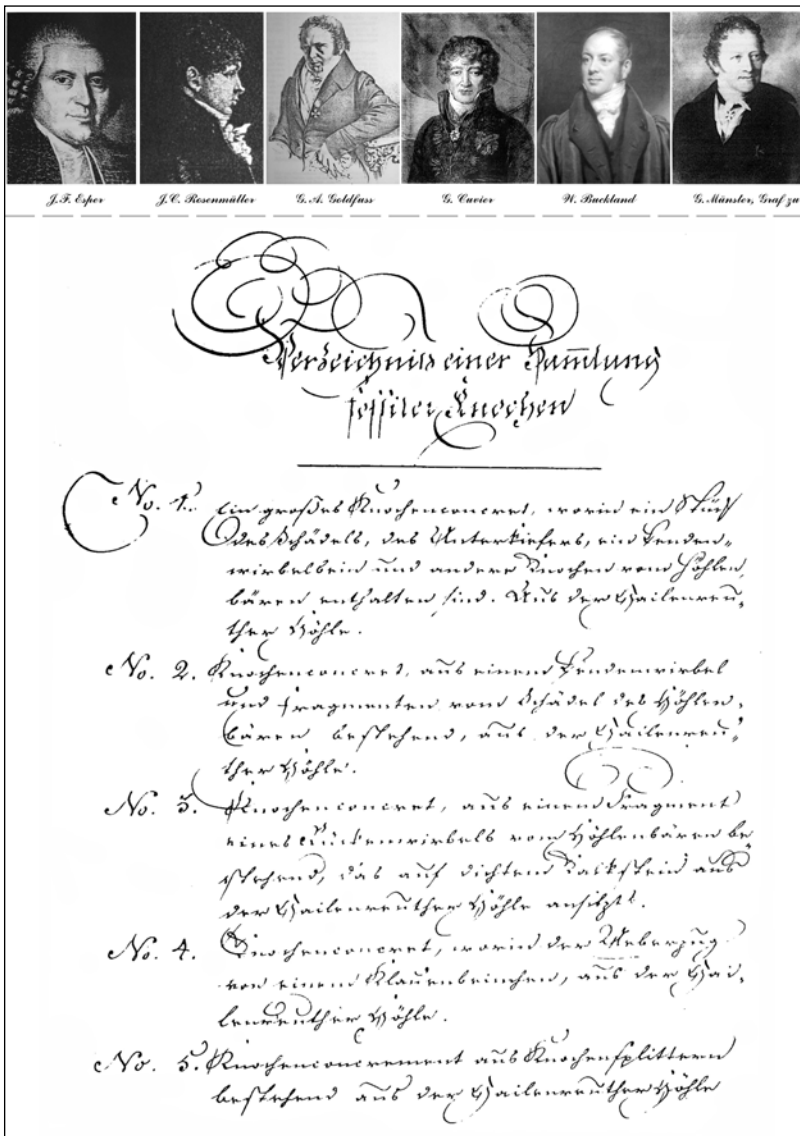 J.F. Esper J.C. Rosenmüller G.A. Goldfuss G. Cuvier W. Buckland G. Münster, Graf zu
Verzeichniss einer Sam̅lung
fossiler Knochen
No. 1. Ein großes Knochenconcret, worin ein Stück
des Schädels, des Unterkiefers, ein Lenden-
wirbelbein und andere Knochen vom Höhlen,
bären enthalten sind. Aus der Gailenreu,
ther Höhle.
No. 2. Knochenconcret, aus einem Lendenwirbel
und Fragmenten vom Schädel des Höhlen,
bären bestehend, aus der Gailenreu,
ther Höhle.
No. 3. Knochenconcret, aus einem Fragment
eines Rückenwirbels vom Höhlenbären be
stehend, das auf dichtem Kalkstein aus
der Gailenreuther Höhle ansitzt.
No. 4. Knochenconcret, worin der Ueberzug
von einem Klauenbeinchen, aus der Gai,
lenreuther Höhle.
No. 5. Knochenconcrement aus Knochensplittern
bestehend aus der Gailenreuther Höhle